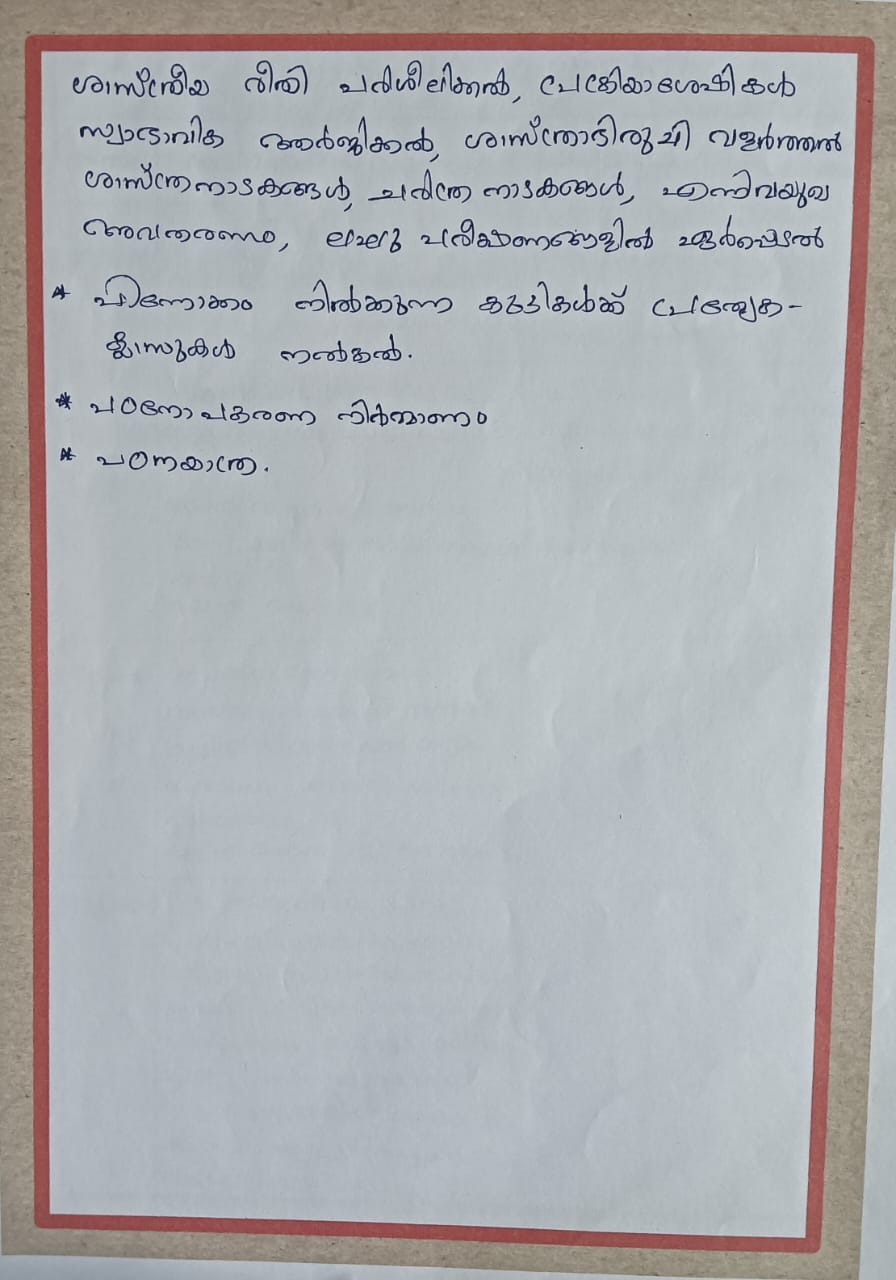 ശാസ്ത്രീയ രീതി പരിശീലിക്കൽ, പ്രക്രിയാശേഷികൾ
സ്വാഭാവിക ആർജ്ജിക്കൽ, ശാസ്ത്രാഭിരുചി വളർത്തൽ
ശാസ്ത്രനാടകങ്ങൾ, ചരിത്ര നാടകങ്ങൾ, എന്നിവയുടെ
അവതരണം, ലഘു പരീക്ഷണങ്ങളിൽ ഏർപ്പെടൽ
* പിന്നോക്കം നിൽക്കുന്ന കുട്ടികൾക്ക് പ്രത്യേക-
ക്ലാസുകൾ നൽകൽ.
* പഠനോപകരണ നിർമ്മാണം
* പഠനയാത്ര.